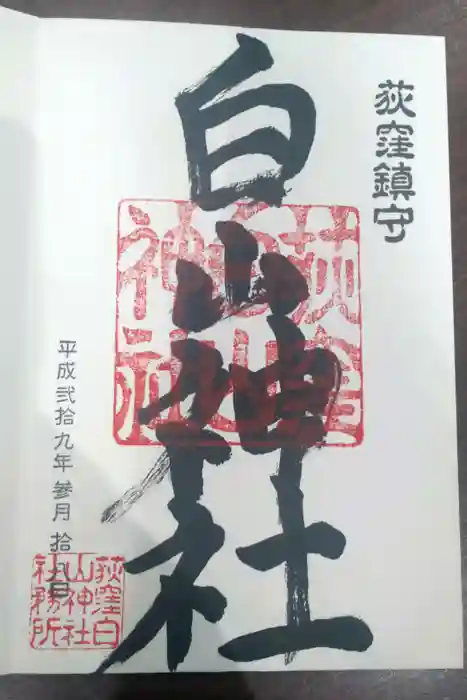 荻窪鎮守
白山神社
荻窪
白山
神社
平成弐拾九年参月拾八日
荻窪白
山神社
社務所